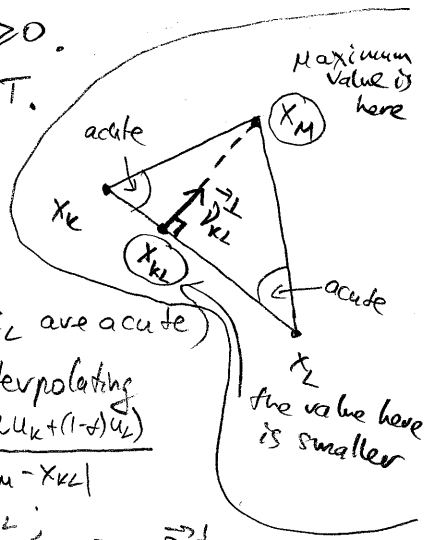 ≥0.
T.
Maximum
value is
here
acute
X_M
X_K
ν⃗_KL^⊥
X_KL
acute
X_L
L are acute)
erpolating
u_K+(1-α)u_L)
M - X_KL|
L;
the value here
is smaller